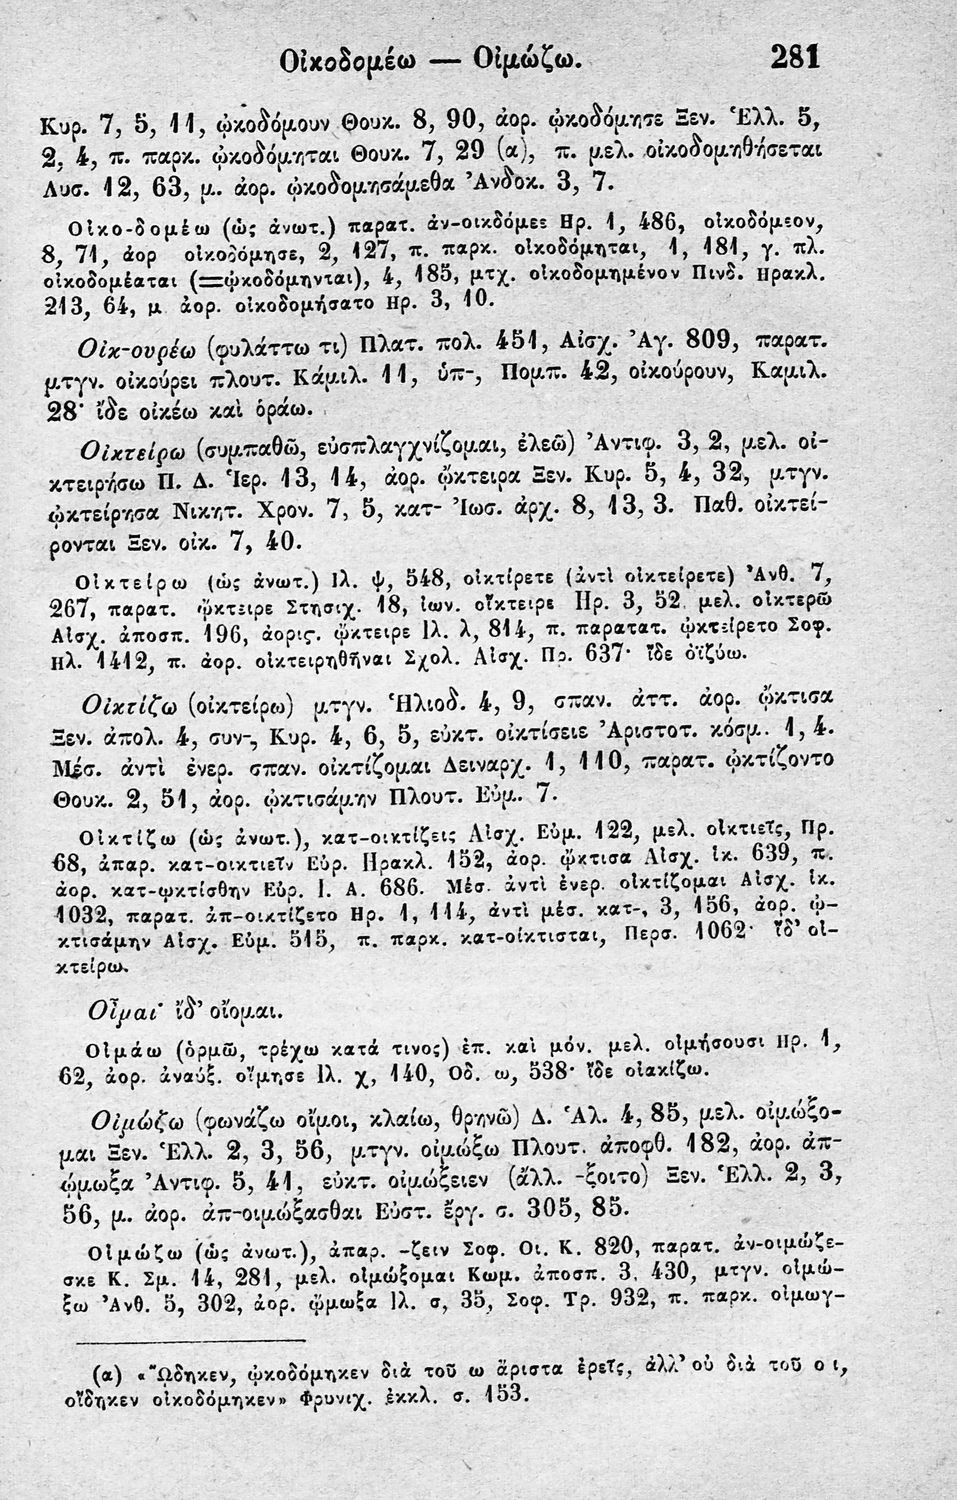 Οἰκοδομέω — Οἰμώζω. 281
Κυρ. 7, 5, 11, ᾠκοδόμουν Θουκ. 8, 90, ἀορ. ᾠκοδόμησε Ξεν. Ἑλλ. 5,
2, 4, π. παρκ. ᾠκοδόμηται Θουκ. 7, 29 (α), π. μελ. οἰκοδομηθήσεται
Λυσ. 12, 63, μ. ἀορ. ᾠκοδομησάμεθα Ἀνδοκ. 3, 7.
Οἰκο-δομέω (ὡς ἀνωτ.) παρατ. ἀν-οικδόμεε Ηρ. 1, 486, οἰκοδόμεον,
8, 71, ἀορ οἰκοδόμησε, 2, 127, π. παρκ. οἰκοδόμηται, 1, 181, γ. πλ.
οἰκοδομέαται (=ᾠκοδόμηνται), 4, 185, μτχ. οἰκοδομημένον Πινδ. Ηρακλ.
213, 64, μ ἀορ. οἰκοδομήσατο Ηρ. 3, 10.
Οἰκ-ουρέω (φυλάττω τι) Πλατ. πολ. 451, Αἰσχ. Ἀγ. 809, παρατ.
μτγν. οἰκούρει πλουτ. Κάμιλ. 11, ὑπ-, Πομπ. 42, οἰκούρουν, Καμιλ.
28· ἴδε οἰκέω καὶ ὁράω.
Οἰκτείρω (συμπαθῶ, εὐσπλαγχνίζομαι, ἐλεῶ) Ἀντιφ. 3, 2, μελ. οἰ-
κτειρήσω Π. Δ. Ἱερ. 13, 14, ἀορ. ᾤκτειρα Ξεν. Κυρ. 5, 4, 32, μτγν.
ᾠκτείρησα Νικητ. Χρον. 7, 5, κατ- Ἰωσ. ἀρχ. 8, 13, 3. Παθ. οἰκτεί-
ρονται Ξεν. οἰκ. 7, 40.
Οἰκτείρω (ὡς ἀνωτ.) Ιλ. ψ, 548, οἰκτίρετε (ἀντὶ οἰκτείρετε) Ἀνθ. 7,
267, παρατ. ᾤκτειρε Στησιχ. 18, ἰων. οἴκτειρε Ηρ. 3, 52, μελ. οἰκτερῶ
Αἰσχ. ἀποσπ. 196, ἀορις. ᾤκτειρε Ιλ. λ, 814, π. παρατατ. ᾠκτείρετο Σοφ.
Ηλ. 1412, π. ἀορ. οἰκτειρηθῆναι Σχολ. Αἰσχ. Πρ. 637· ἴδε ὀϊζύω.
Οἰκτίζω (οἰκτείρω) μτγν. Ἡλιοδ. 4, 9, σπαν. ἀττ. ἀορ. ᾤκτισα
Ξεν. ἀπολ. 4, συν-, Κυρ. 4, 6, 5, εὐκτ. οἰκτίσειε Ἀριστοτ. κόσμ. 1, 4.
Μέσ. ἀντὶ ἐνερ. σπαν. οἰκτίζομαι Δειναρχ. 1, 110, παρατ. ᾠκτίζοντο
Θουκ. 2, 51, ἀορ. ᾠκτισάμην Πλουτ. Εὐμ. 7.
Οἰκτίζω (ὡς ἀνωτ.), κατ-οικτίζεις Αἰσχ. Εὐμ. 122, μελ. οἰκτιεῖς, Πρ.
68, ἀπαρ. κατ-οικτιεῖν Εὐρ. Ηρακλ. 152, ἀορ. ᾤκτισα Αἰσχ. ἱκ. 639, π.
ἀορ. κατ-ῳκτίσθην Εὐρ. Ι. Α. 686. Μέσ. ἀντὶ ἐνερ. οἰκτίζομαι Αἰσχ. ἱκ.
1032, παρατ. ἀπ-οικτίζετο Ηρ. 1, 114, ἀντὶ μέσ. κατ-, 3, 156, ἀορ. ᾠ-
κτισάμην Αἰσχ. Εὐμ. 515, π. παρκ. κατ-οίκτισται, Περσ. 1062· ἴδ' οἰ-
κτείρω.
Οἶμαι· ἴδ' οἴομαι.
Οἰμάω (ὁρμῶ, τρέχω κατά τινος) ἐπ. καὶ μόν. μελ. οἰμήσουσι Ηρ. 1,
62, ἀορ. ἀναύξ. οἴμησε Ιλ. χ, 140, Οδ. ω, 538· ἴδε οἰακίζω.
Οἰμώζω (φωνάζω οἴμοι, κλαίω, θρηνῶ) Δ. Ἁλ. 4, 85, μελ. οἰμώξο-
μαι Ξεν. Ἑλλ. 2, 3, 56, μτγν. οἰμώξω Πλουτ. ἀποφθ. 182, ἀορ. ἀπ-
ῴμωξα Ἀντιφ. 5, 41, εὐκτ. οἰμώξειεν (ἄλλ. -ξοιτο) Ξεν. Ἑλλ. 2, 3,
56, μ. ἀορ. ἀπ-οιμώξασθαι Εὐστ. ἔργ. σ. 305, 85.
Οἰμώζω (ὡς ἀνωτ.), ἀπαρ. -ζειν Σοφ. Οι. Κ. 820, παρατ. ἀν-οιμώζε-
σκε Κ. Σμ. 14, 281, μελ. οἰμώξομαι Κωμ. ἀποσπ. 3, 430, μτγν. οἰμώ-
ξω Ἀνθ. 5, 302, ἀορ. ᾤμωξα Ιλ. σ, 35, Σοφ. Τρ. 932, π. παρκ. οἰμωγ-
(α) «Ὤδηκεν, ᾠκοδόμηκεν διὰ τοῦ ω ἄριστα ἐρεῖς, ἀλλ' οὐ διὰ τοῦ οι,
οἴδηκεν οἰκοδόμηκεν» Φρυνιχ. ἐκκλ. σ. 153.